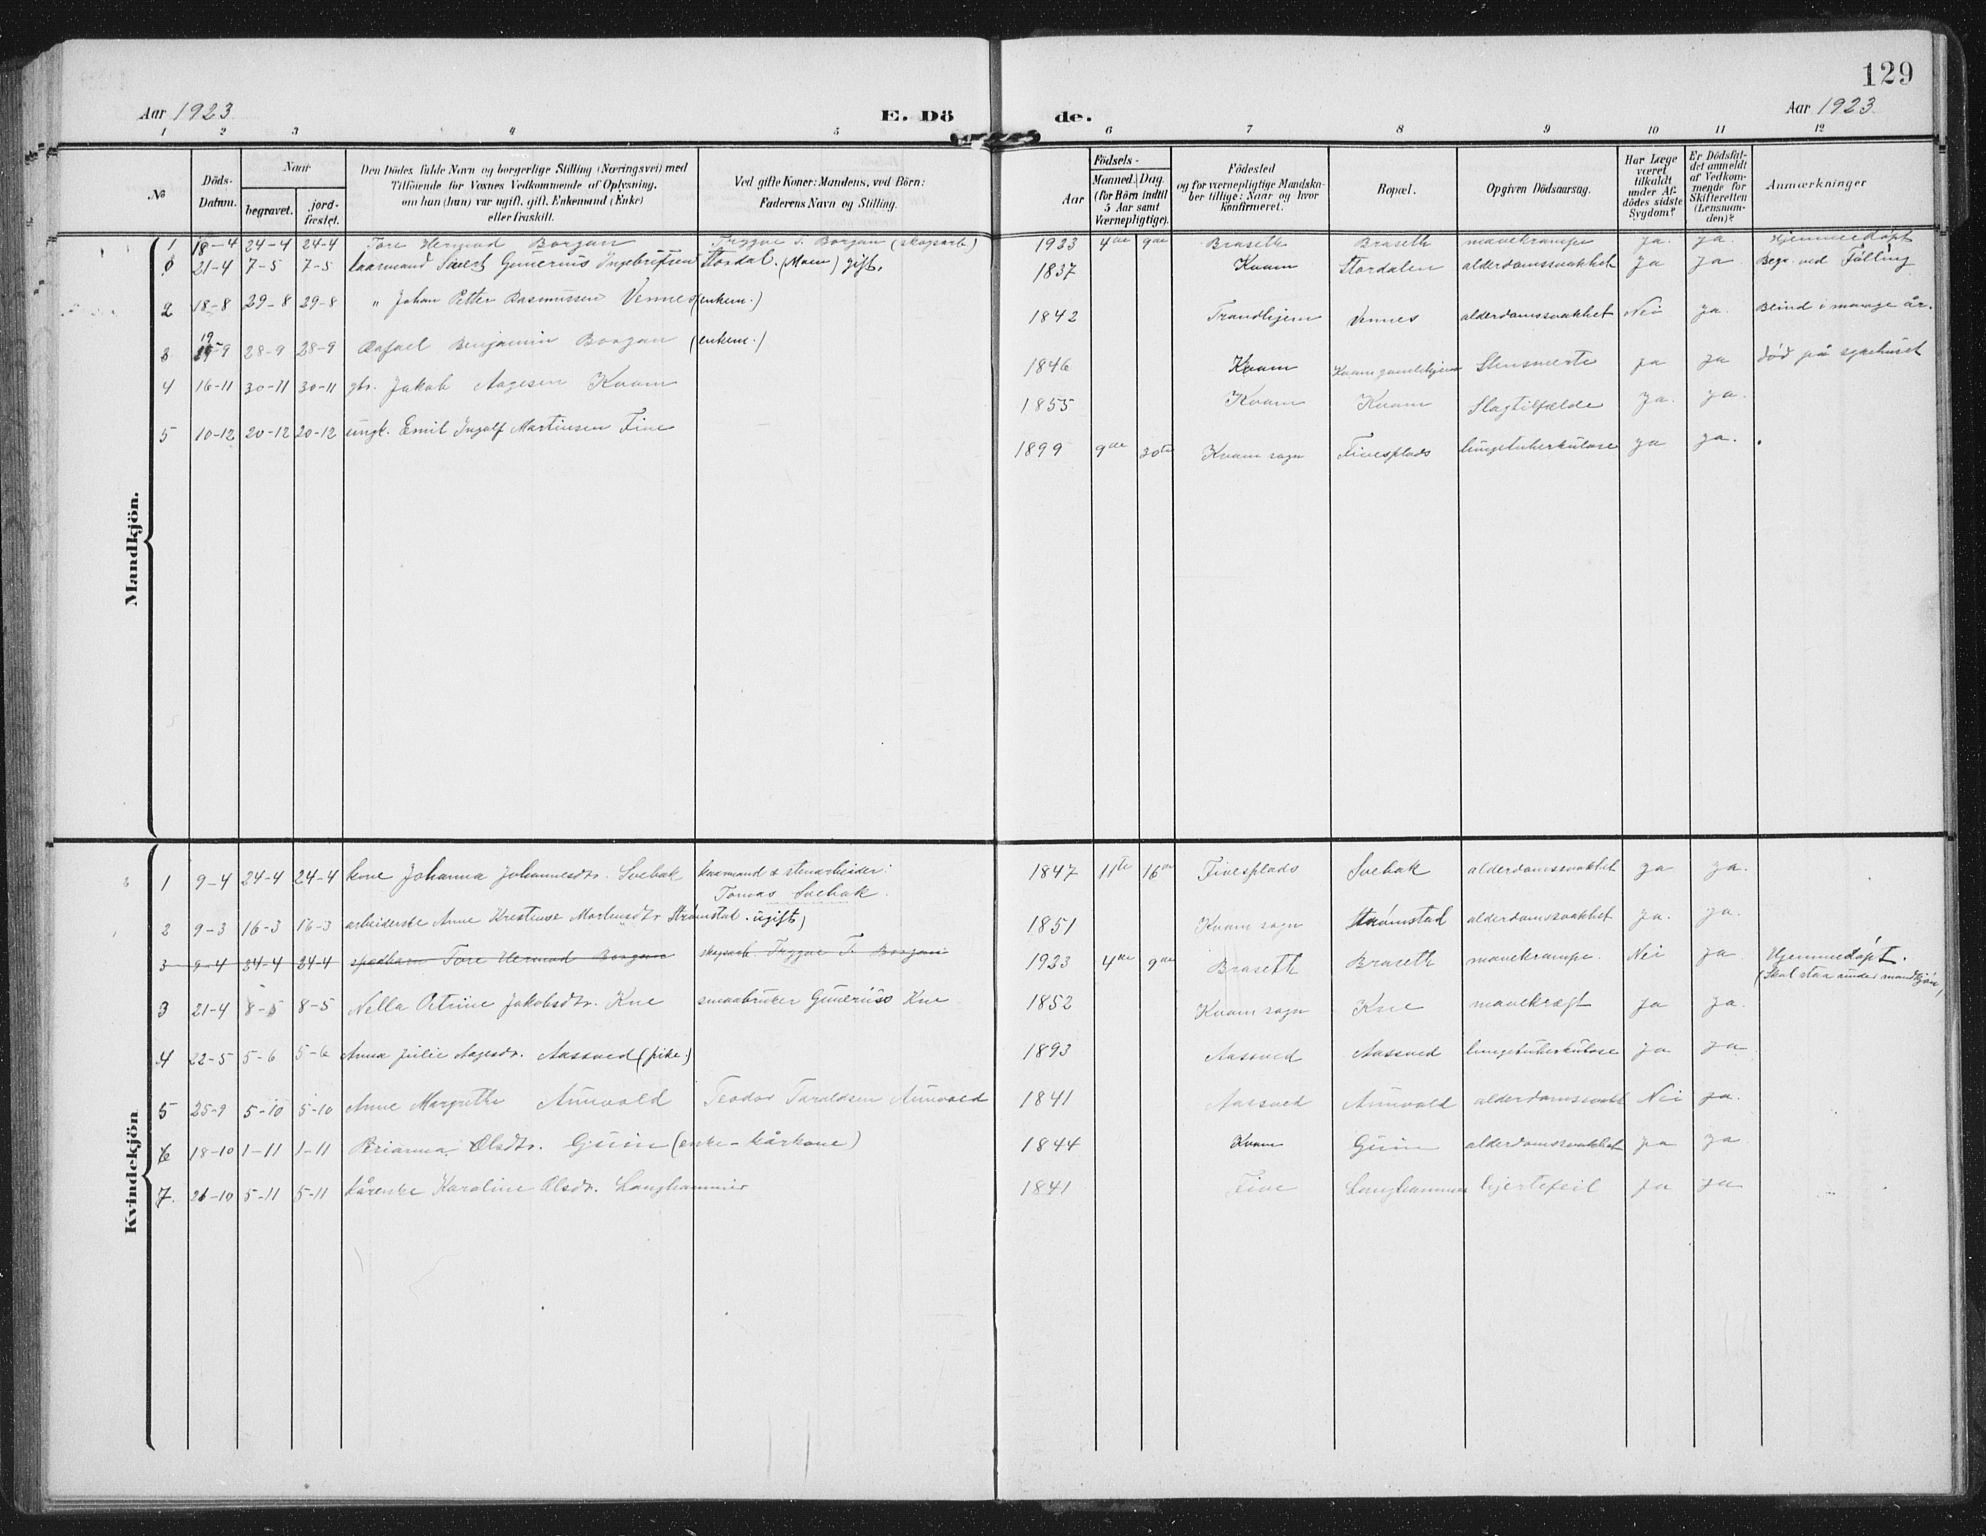 129
Aar 1923
E. Dö
de.
Aar 1923
1 2 3 4 5 6 7 8 9 10 11 12
№
Döds-Datum.
Naar
begravet.
jord-fæstet.
Den Dödes fulde Navn og borgerlige Stilling (Næringsvei) med
Tilföiende for Voxnes Vedkommende af Oplysning,
om han (hun) var ugift, gift, Enkemand (Enke)
eller fraskilt.
Ved gifte Koner: Mandens, ved Börn:
Faderens Navn og Stilling.
Födsels-
Aar
Maaned. Dag
(for Börn indtil
5 Aar samt
Værnepligtige).
Födested
og for værnepligtige Mandskaber tillige: Naar og hvor
konfirmeret.
Bopæl.
Opgiven Dödsaarsag.
Har Læge
været
tilkaldt
under Afdödes sidste
Sygdom?
Er Dödsfaldet anmeldt
af Vedkommende for
Skifteretten
(Lensmanden)?
Anmærkninger
Mandkjön.
1 18-4 24-4 24-4 Tore Hermod Borgan Tryggve T. Borgan (skogsarb.) 1923 4de 9de Braseth Braseth mavekrampe ja. ja. Hjemmedøpt
21-4 7-5 7-5 kaarmand Sivert Gunerius Ingebrigtsen Stordal. (Moen) gift. 1837 Kvam Stordalen alderdomssvakhet ja ja Begr. ved Følling
2 18-8 29-8 29-8 " Johan Petter Rasmussen Vennes (enkem.) 1842 Trondhjem Vennes alderdomssvakhet Nei ja. Blind i mange år.
3 19-9 28-9 28-9 Rafael Benjamin Borgan (enkem.) 1846 Kvam Kvam gamlehjem Stensmerte ja ja død på sykehuset
4 16-11 30-11 30-11 gbr. Jakob Aagesen Kvam 1855 Kvam Kvam Slagtilfælde ja. ja.
5 10-12 20-12 20-12 ungk. Emil Ingolf Martinsen Five 1899 9de 30te Kvam sogn Fivesplads lungetuberkulose ja ja.
Kvindekjön
1 9-4 24-4 24-4 kone Johanna Johannesdtr. Svebak kaarmand & stenarbeider: 1847 11te 16de Fivesplads Svebak alderdomssvakhet ja ja.
Tomas Svebak.
2 9-3 16-3 16-3 arbeiderske Anne Krestense Mortensdtr. Strømstad. ugift) 1851 Kvam sogn Strømstad alderdomssvakhet ja. ja.
3 9-4 24-4 24-4 spedbarn Tore Hermod Borgan skogsarb. Tryggve T. Borgan 1923 4de 9de Braseth Braseth mavekrampe. Nei ja Hjemmedøpt.
(Skal staa under mandkjøn)
3 21-4 8-5 8-5 Nella Petrine Jakobsdtr. Kne smaabruker Gunerius Kne 1852 Kvam sogn Kne mavekræft ja ja.
4 22-5 5-6 5-6 Anna Julie Aagesdr. Aassved (pike.) 1893 Aassved Aassved lungetuberkulose ja ja
5 25-9 5-10 5-10 Anne Margrethe Aunvold Teodor Taraldsen Aunvold 1841 Aassved Aunvold alderdomssvakh Nei ja.
6 18-10 1-11 1-11 Brianna Olsdtr. Guin (enke - kårkone) 1844 Kvam Guin alderdomssvakhet ja ja
7. 26-10 5-11 5-11 kårenke Karoline Olsdr. Langhammer 1841 Five Langhammer hjertefeil ja ja